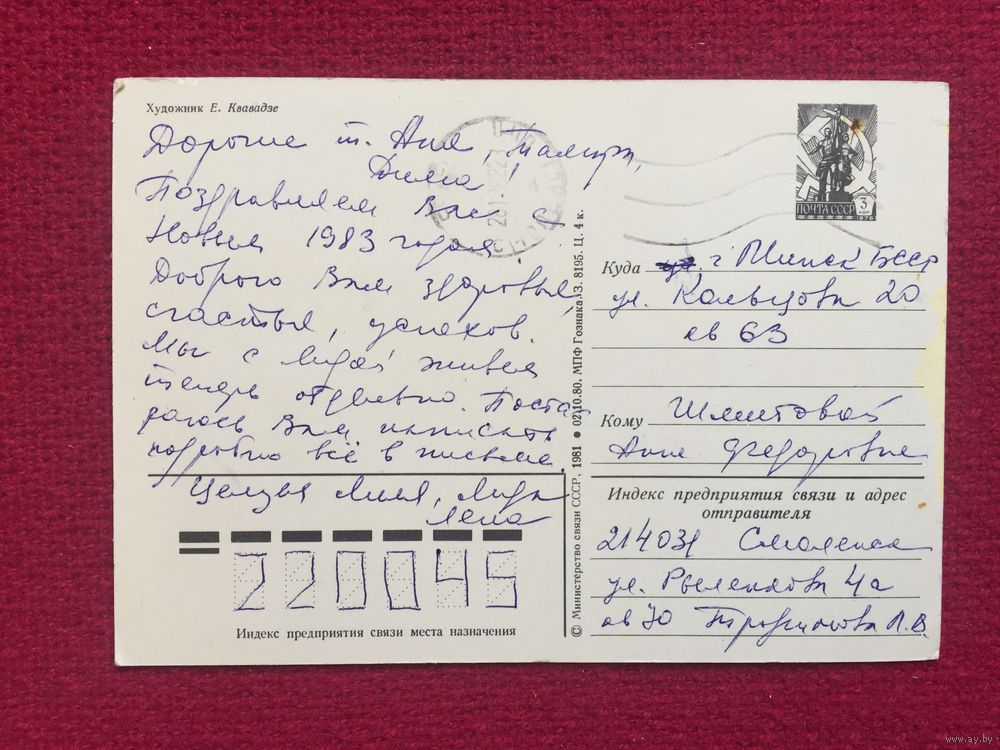 Художник Е. Квавадзе
Дорогие т. Аня, Тамара,
Дима!
Поздравляем Вас с
Новым 1983 годом.
Доброго Вам здоровья,
счастья, успехов.
Мы с Лидой живем
теперь отдельно. Поста-
раюсь Вам написать
подробно всё в письме.
Целуем Лиля, Лида
Лена
Индекс предприятия связи места назначения
220045
© Министерство связи СССР, 1981 ● 02.10.80. МПФ Гознака. З. 8195. Ц. 4 к.
ПОЧТА СССР
3 коп
1976
Куда г Минск БССР
ул. Кольцова 20
кв 63
Кому
Анне Федоровне
Индекс предприятия связи и адрес
отправителя
214031 Смоленск
ул. Рыленкова 4а
кв 70 Л.В.
www.ay.by